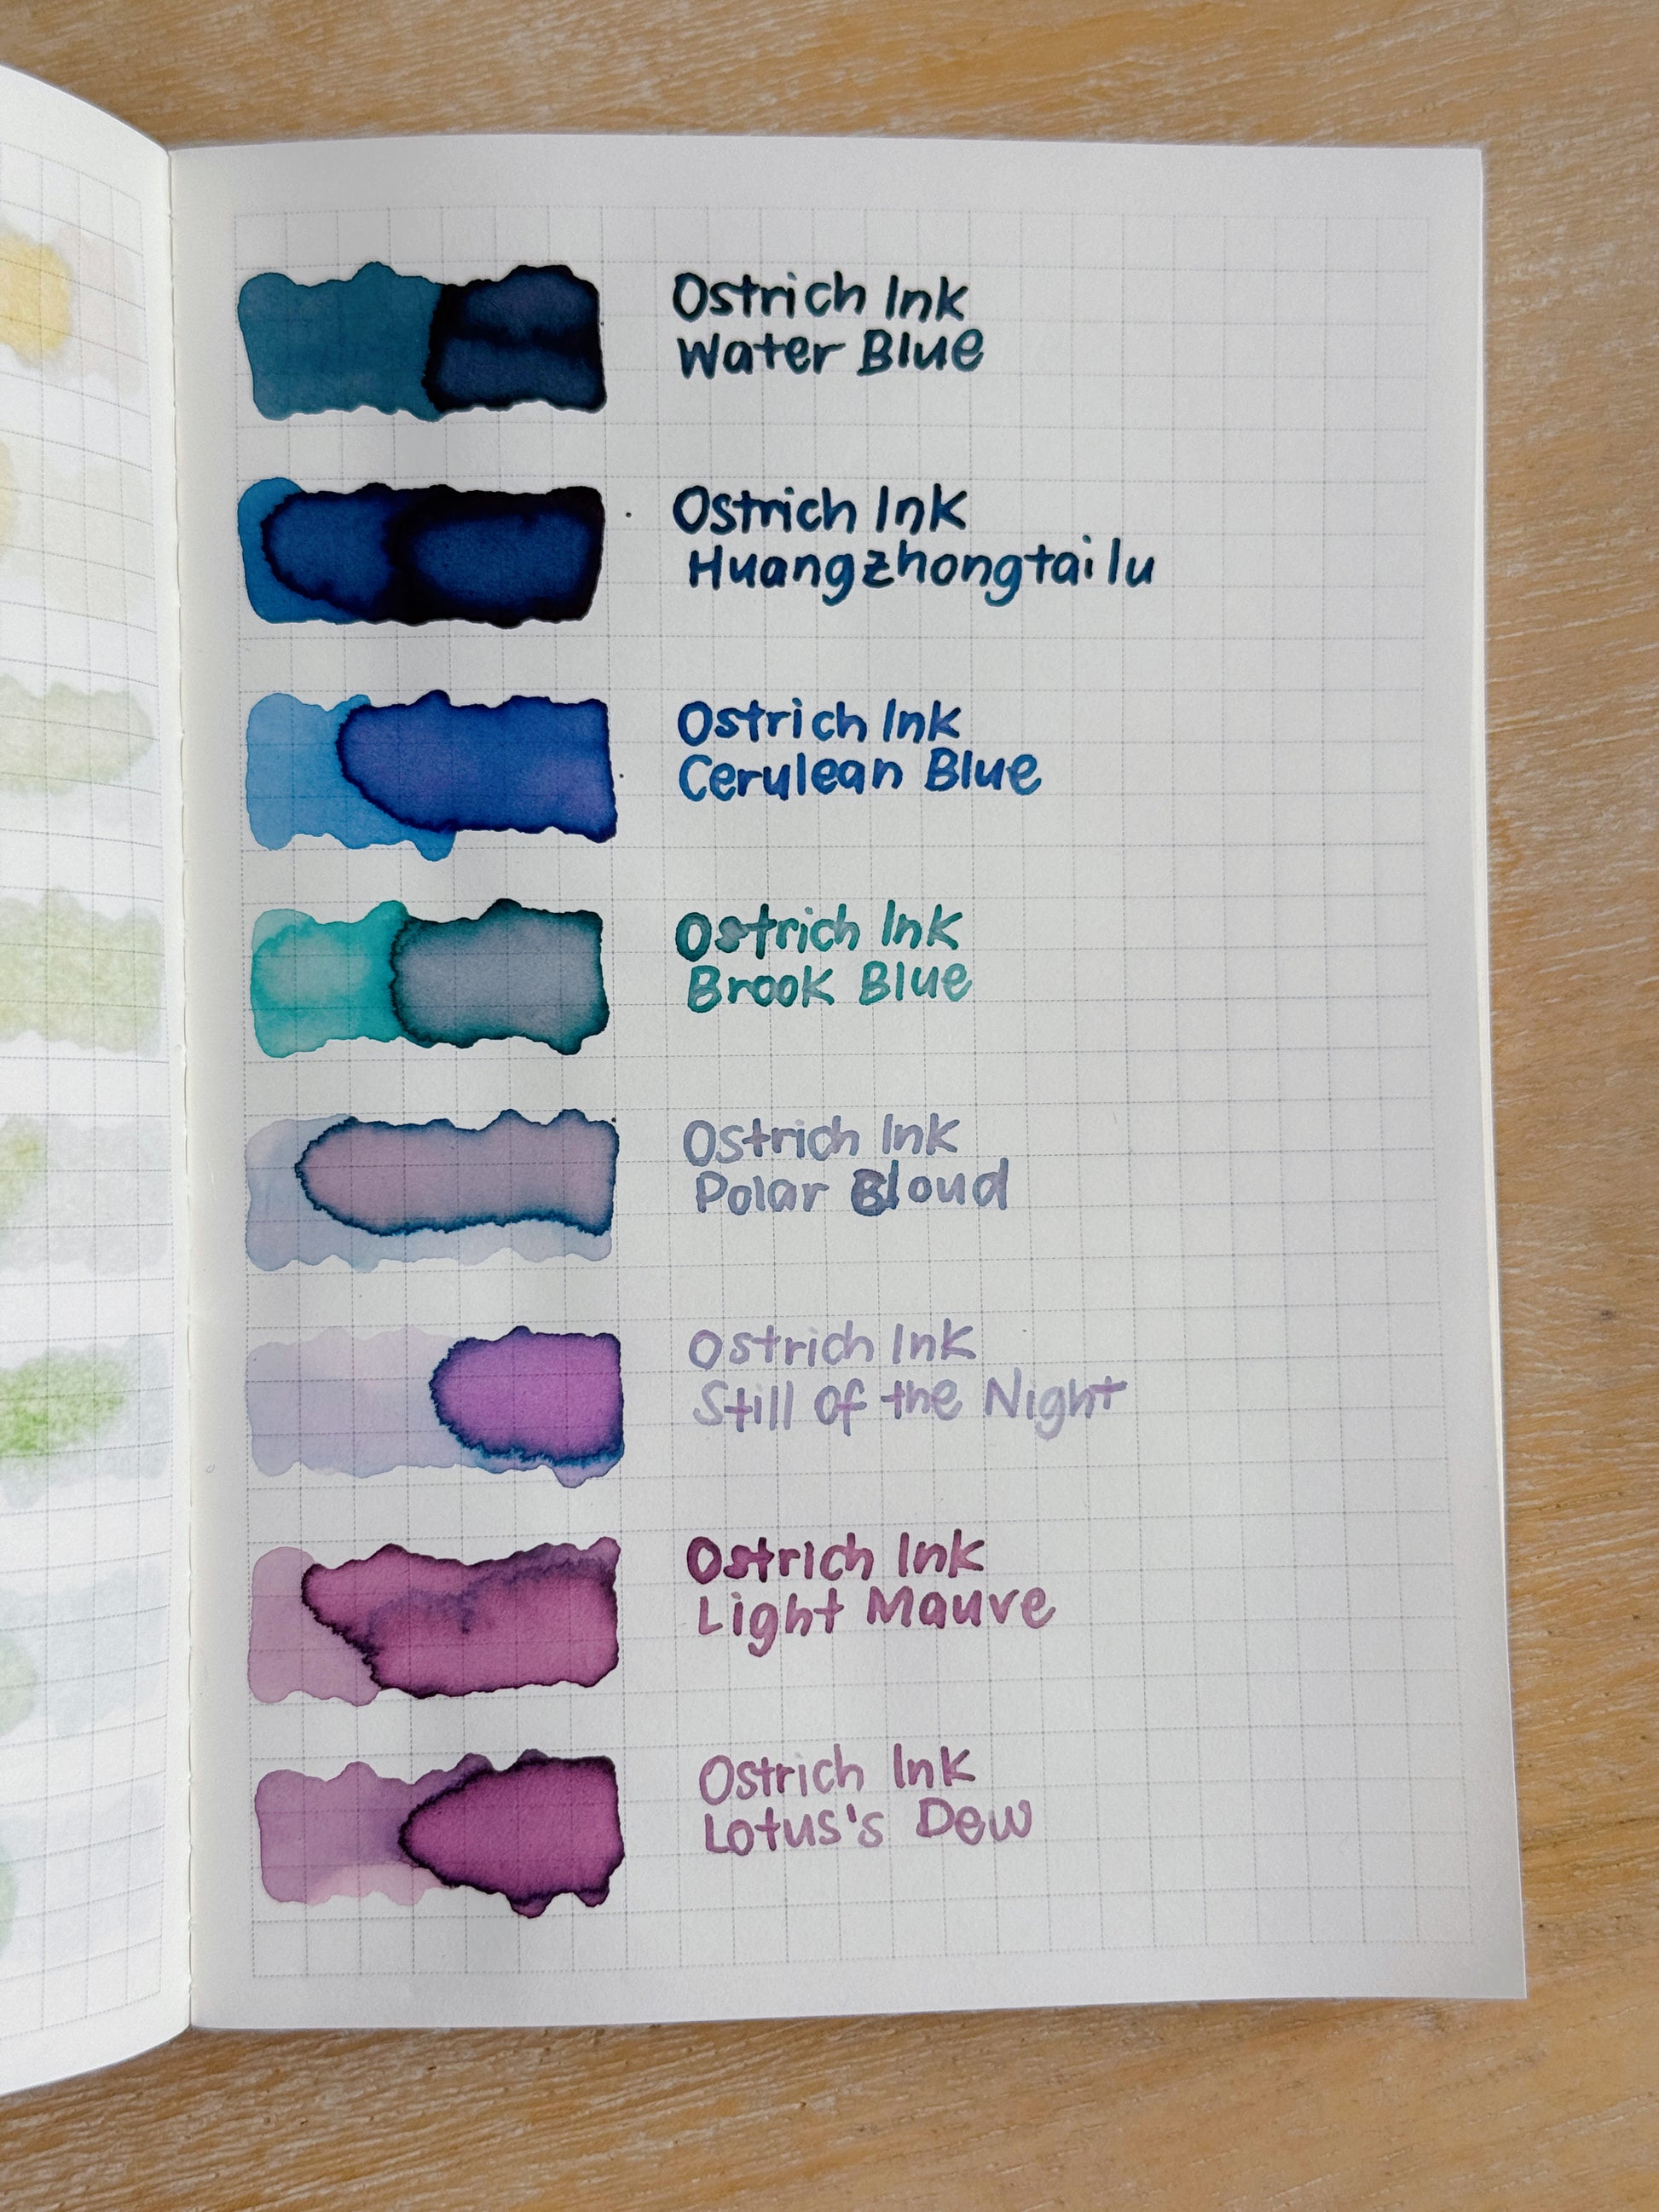 Ostrich Ink
Water Blue
Ostrich Ink
Huangzhongtailu
Ostrich Ink
Cerulean Blue
Ostrich Ink
Brook Blue
Ostrich Ink
Polar Cloud
Ostrich Ink
Still of the Night
Ostrich Ink
Light Mauve
Ostrich Ink
Lotus's Dew